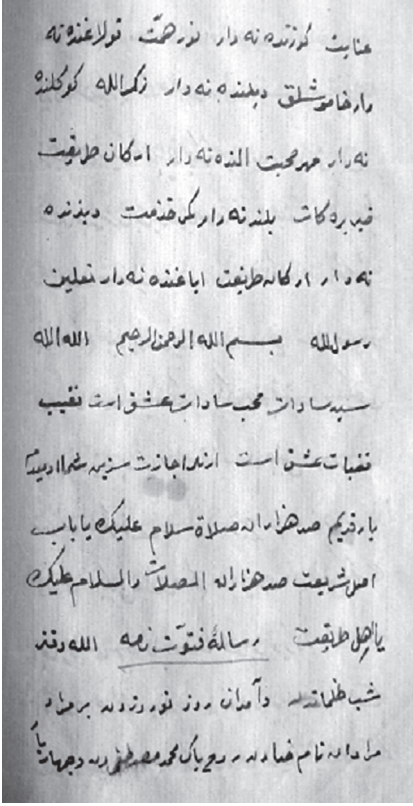 عنايت كوزنده نه دار نور همّت قولاغنده نه
دار خاموشلق ديلنده نه دار ذكر الله كوكلنده
نه دار مهر محبت النده نه دار اركان طريقت
بلنده نه دار كمر خدمت ديزنده
نه دار اركان طريقت اياغنده نه دار نعلين
رسول الله بسم الله الرحمن الرحيم الله الله
سيد سادات محب سادات عشق است نقيب
نقبات عشق است اجازت
يار قديم صد هزاران صلاة سلام عليك يا باب
اهل شريعت صد هزاران الصلات والسلام عليك
يا اهل طريقت رسالۀ فتوّت نامه الله
شب ظلمات روز نوروزدن بر مراد
مرادان روح پاك محمد مصطفى